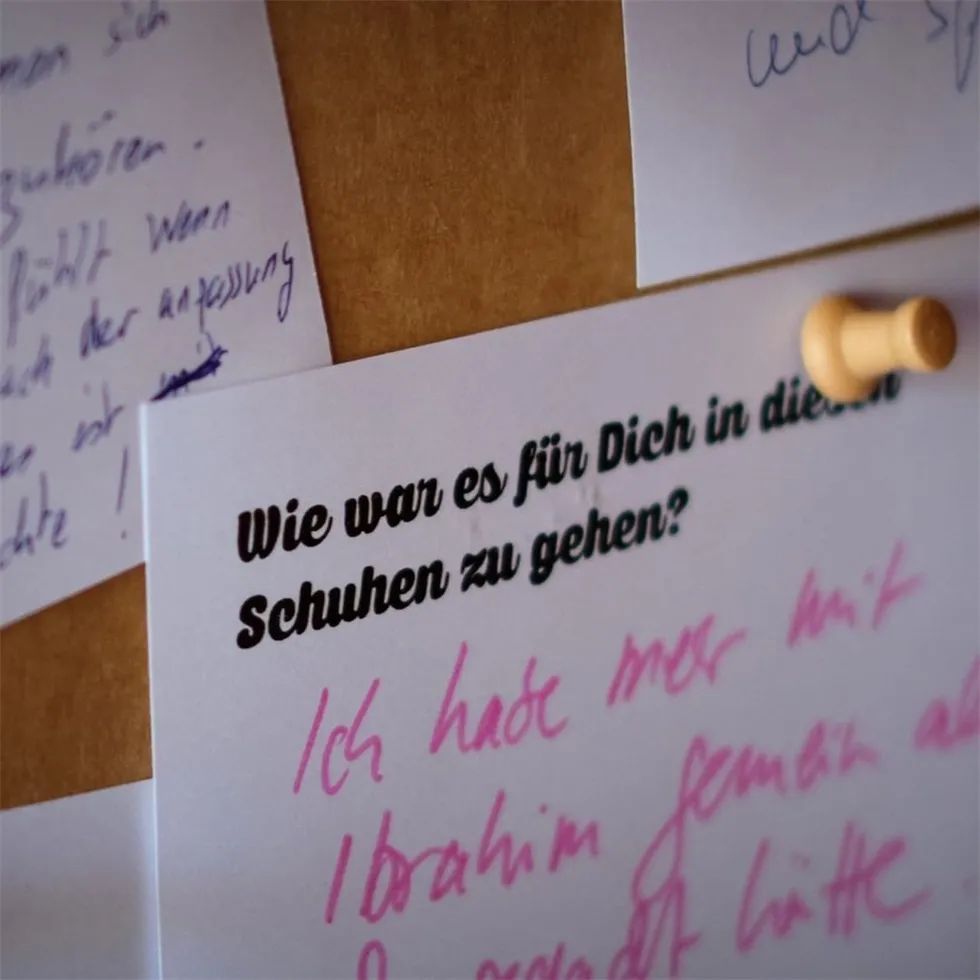 sich
zuhören.
fühlt wenn
der anpassung
ist mit
!
und
Wie war es für Dich in diesen
Schuhen zu gehen?
Ich habe mer mit
Ibrahim gemein al
hätte.